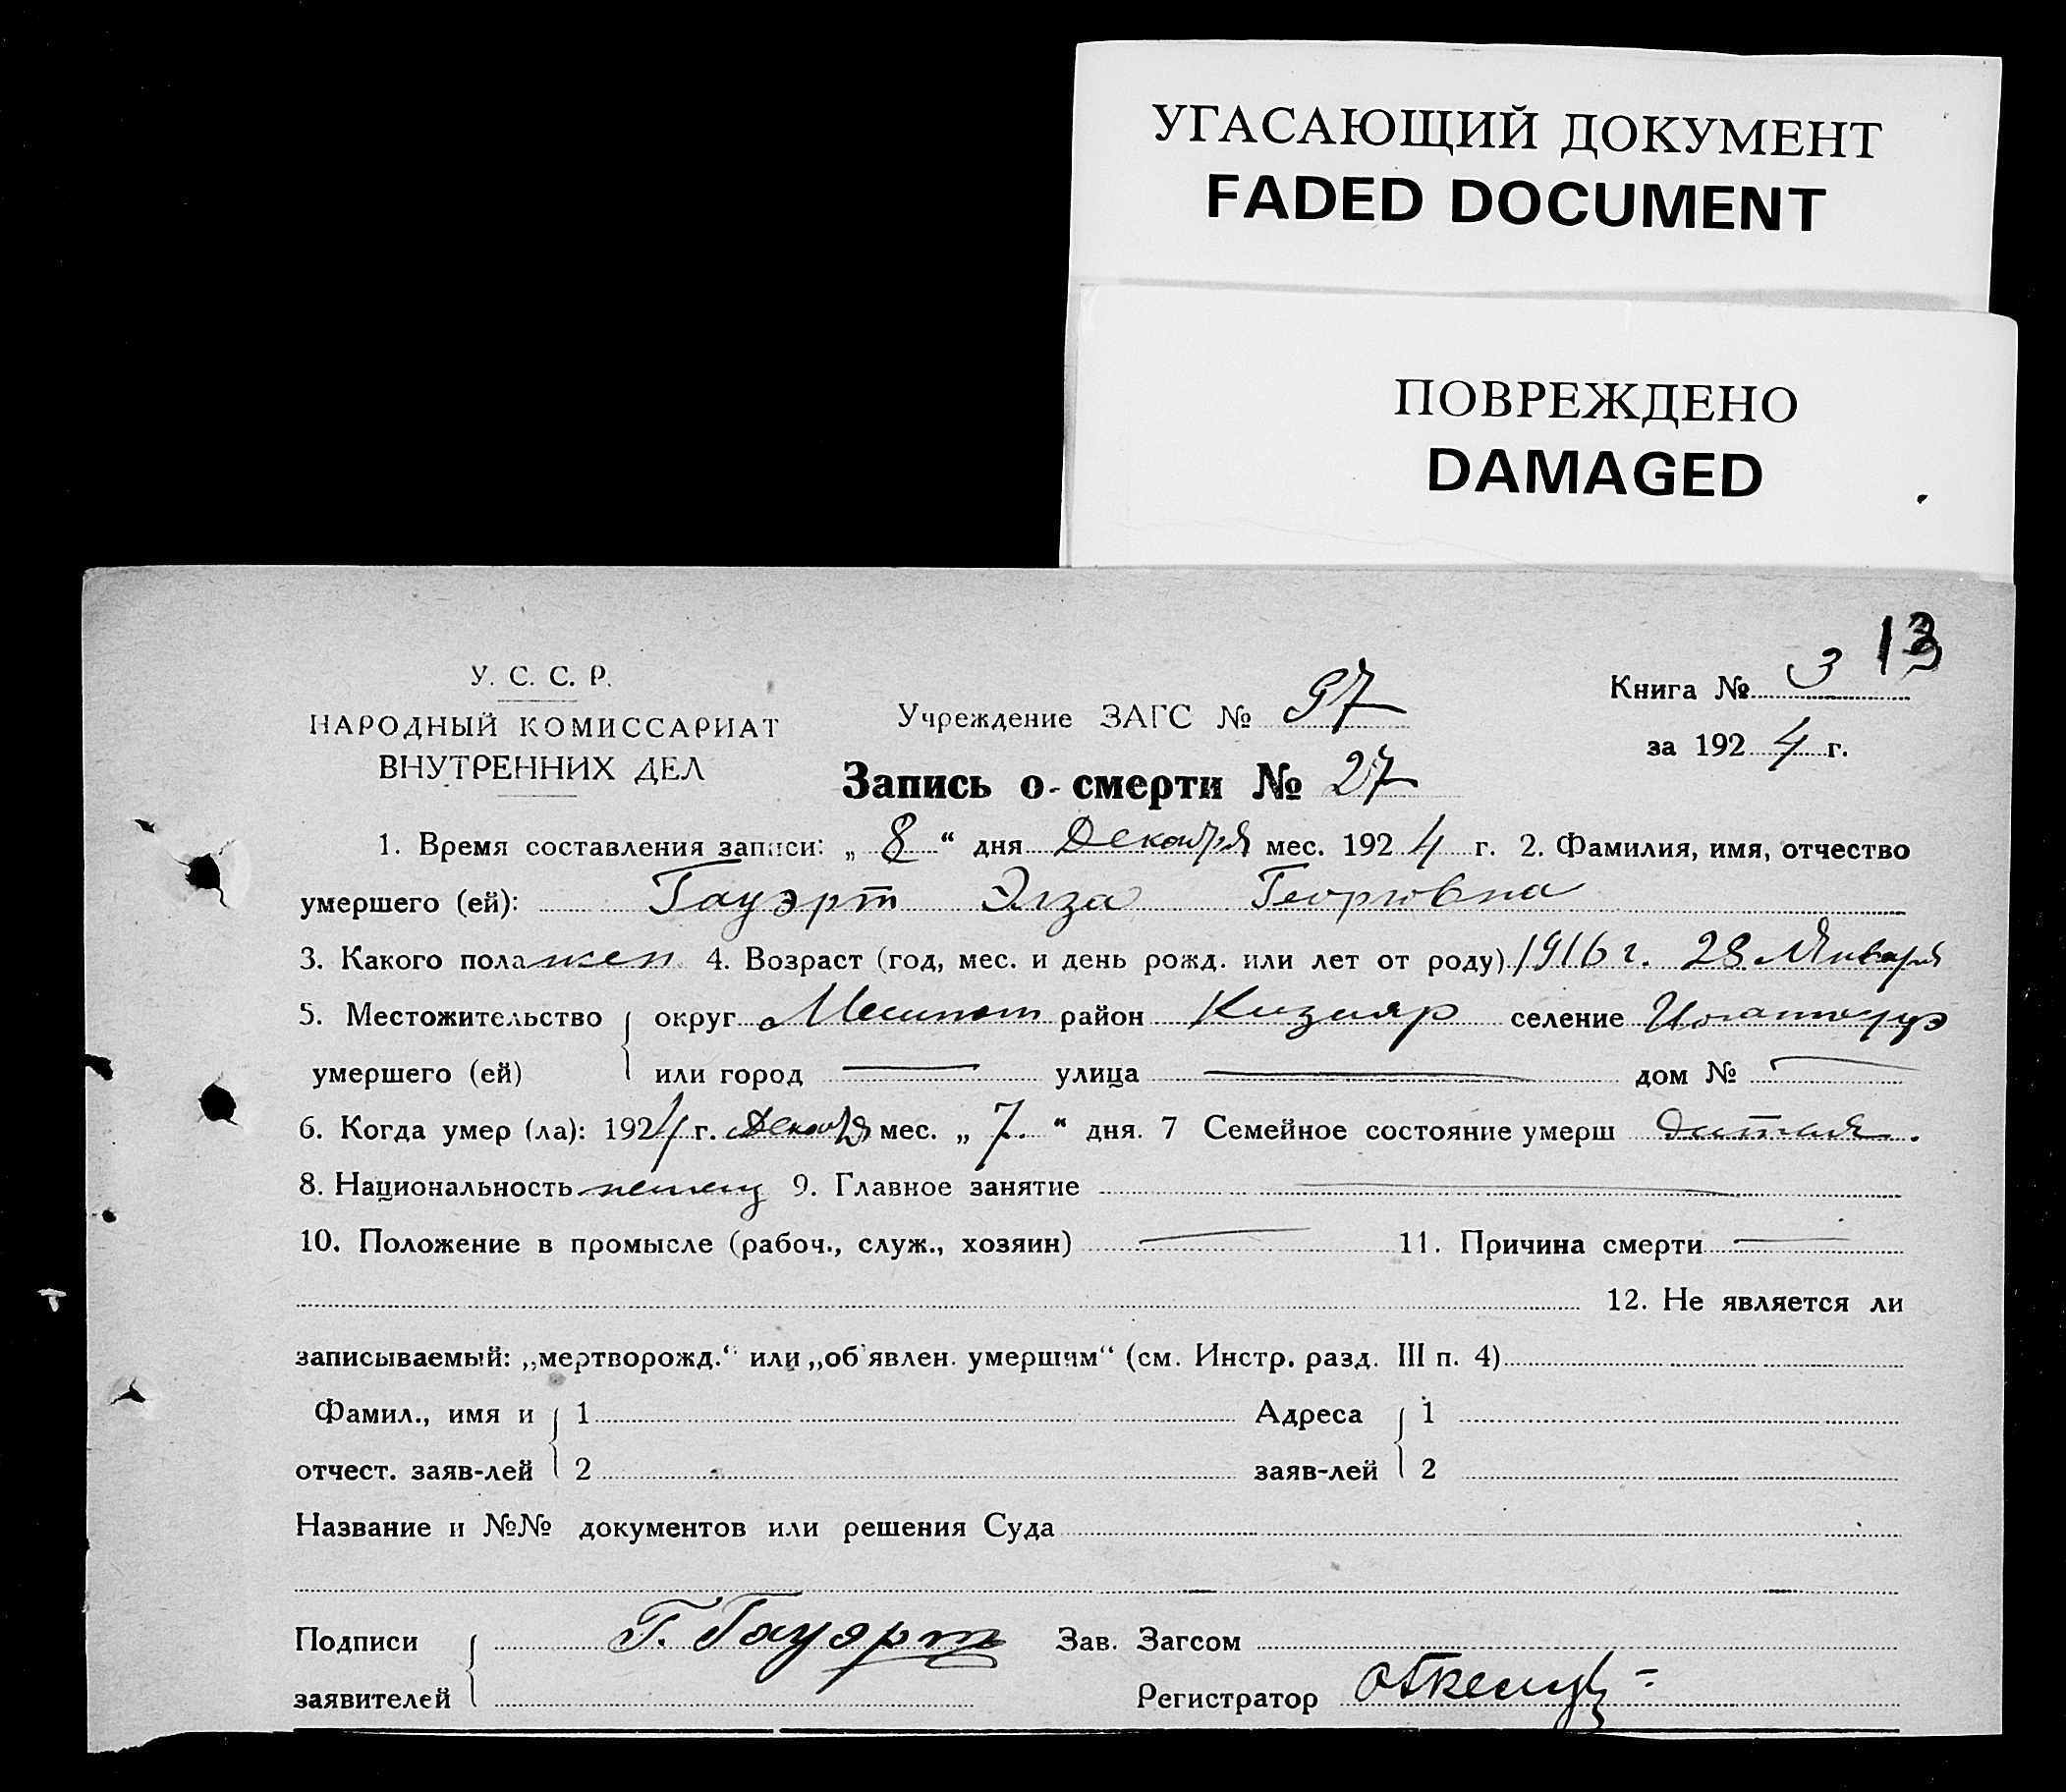 УГАСАЮЩИЙ ДОКУМЕНТ
FADED DOCUMENT
ПОВРЕЖДЕНО
DAMAGED
13
У. С. С. Р.
НАРОДНЫЙ КОМИССАРИАТ
ВНУТРЕННИХ ДЕЛ
Учреждение ЗАГС № 97
Книга № 3
за 1924 г.
Запись о смерти № 27
1. Время составления записи: „ 8 “ дня Декабря мес. 1924 г. 2. Фамилия, имя, отчество
умершего (ей): Гауэрт Элза Георговна
3. Какого пола жен 4. Возраст (год, мес. и день рожд. или лет от роду) 1916 г. 28 Января
5. Местожительство округ район Кизияр селение
умершего (ей) или город — улица — дом № —
6. Когда умер (ла): 1924 г. Декабря мес. „ 7. “ дня. 7 Семейное состояние умерш дитая.
8. Национальность немец 9. Главное занятие —
10. Положение в промысле (рабоч., служ., хозяин) — 11. Причина смерти —
12. Не является ли
записываемый: „мертворожд.“ или „об'явлен. умершим“ (см. Инстр. разд. III п. 4)
Фамил., имя и 1 Адреса 1
отчест. заяв-лей 2 заяв-лей 2
Название и №№ документов или решения Суда
Подписи Г. Гауэрт Зав. Загсом
заявителей Регистратор